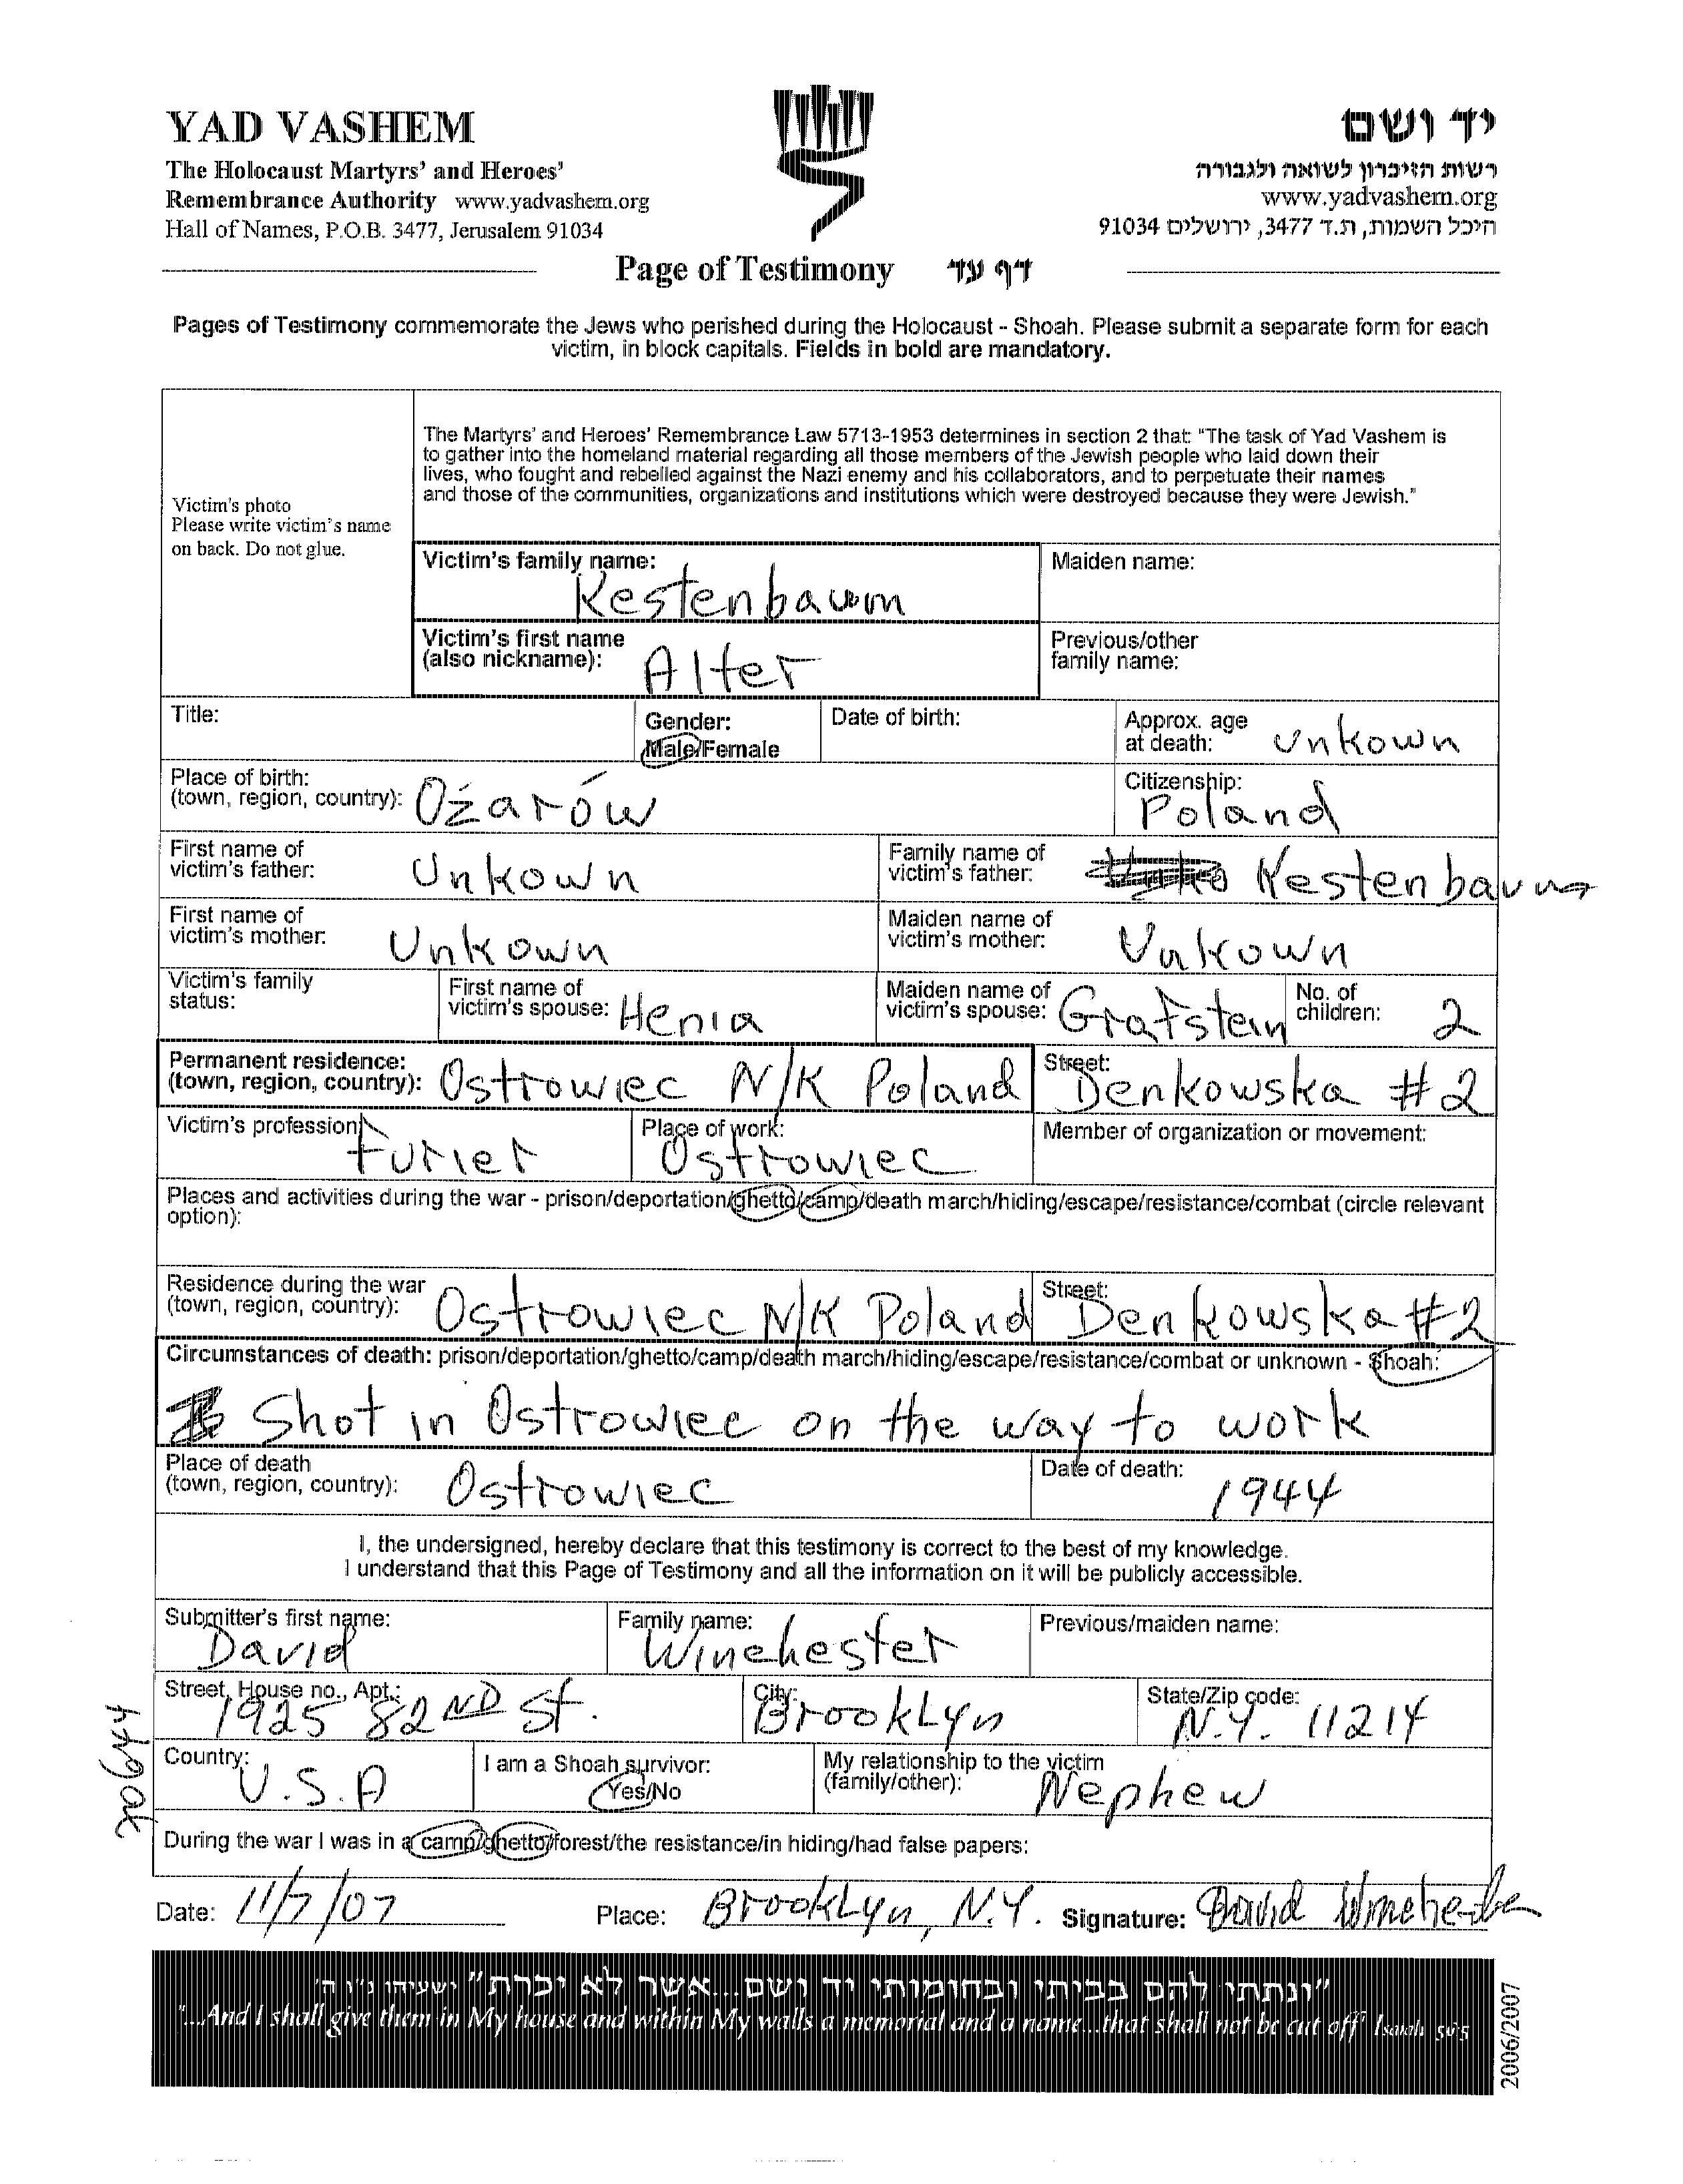 YAD VASHEM
The Holocaust Martyrs' and Heroes'
Remembrance Authority www.yadvashem.org
Hall of Names, P.O.B. 3477, Jerusalem 91034
יד ושם
רשות הזיכרון לשואה ולגבורה
www.yadvashem.org
היכל השמות, ת.ד 3477, ירושלים 91034
Page of Testimony דף עד
Pages of Testimony commemorate the Jews who perished during the Holocaust - Shoah. Please submit a separate form for each
victim, in block capitals. Fields in bold are mandatory.
Victim's photo
Please write victim's name
on back. Do not glue.
The Martyrs' and Heroes' Remembrance Law 5713-1953 determines in section 2 that: "The task of Yad Vashem is
to gather into the homeland material regarding all those members of the Jewish people who laid down their
lives, who fought and rebelled against the Nazi enemy and his collaborators, and to perpetuate their names
and those of the communities, organizations and institutions which were destroyed because they were Jewish."
Victim's family name: Kestenbaum
Maiden name:
Victim's first name
(also nickname): Alter
Previous/other
family name:
Title:
Gender:
Male/Female
Date of birth:
Approx. age
at death: Unkown
Place of birth:
(town, region, country): Ożarów
Citizenship:
Poland
First name of
victim's father: Unkown
Family name of
victim's father: Kestenbaum
First name of
victim's mother: Unkown
Maiden name of
victim's mother: Unkown
Victim's family
status:
First name of
victim's spouse: Henia
Maiden name of
victim's spouse: Grafstein
No. of
children: 2
Permanent residence:
(town, region, country): Ostrowiec N/K Poland
Street:
Denkowska #2
Victim's profession: furier
Place of work:
Ostrowiec
Member of organization or movement:
Places and activities during the war - prison/deportation/ghetto/camp/death march/hiding/escape/resistance/combat (circle relevant
option):
Residence during the war
(town, region, country): Ostrowiec N/K Poland
Street:
Denkowska #2
Circumstances of death: prison/deportation/ghetto/camp/death march/hiding/escape/resistance/combat or unknown - Shoah:
Shot in Ostrowiec on the way to work
Place of death
(town, region, country): Ostrowiec
Date of death:
1944
I, the undersigned, hereby declare that this testimony is correct to the best of my knowledge.
I understand that this Page of Testimony and all the information on it will be publicly accessible.
Submitter's first name:
David
Family name:
Winchester
Previous/maiden name:
Street, House no., Apt.:
1925 82ND St.
City:
Brooklyn
State/Zip code:
N.Y. 11214
Country:
U.S.A
I am a Shoah survivor:
Yes/No
My relationship to the victim
(family/other): Nephew
During the war I was in a camp/ghetto/forest/the resistance/in hiding/had false papers:
Date: 11/7/07 Place: Brooklyn, N.Y. Signature: David Winchester
"ונתתי להם בביתי ובחומותי יד ושם...אשר לא יכרת" ישעיהו נ"ו ה'
"...And I shall give them in My house and within My walls a memorial and a name...that shall not be cut off" Isaiah 56:5
2006/2007